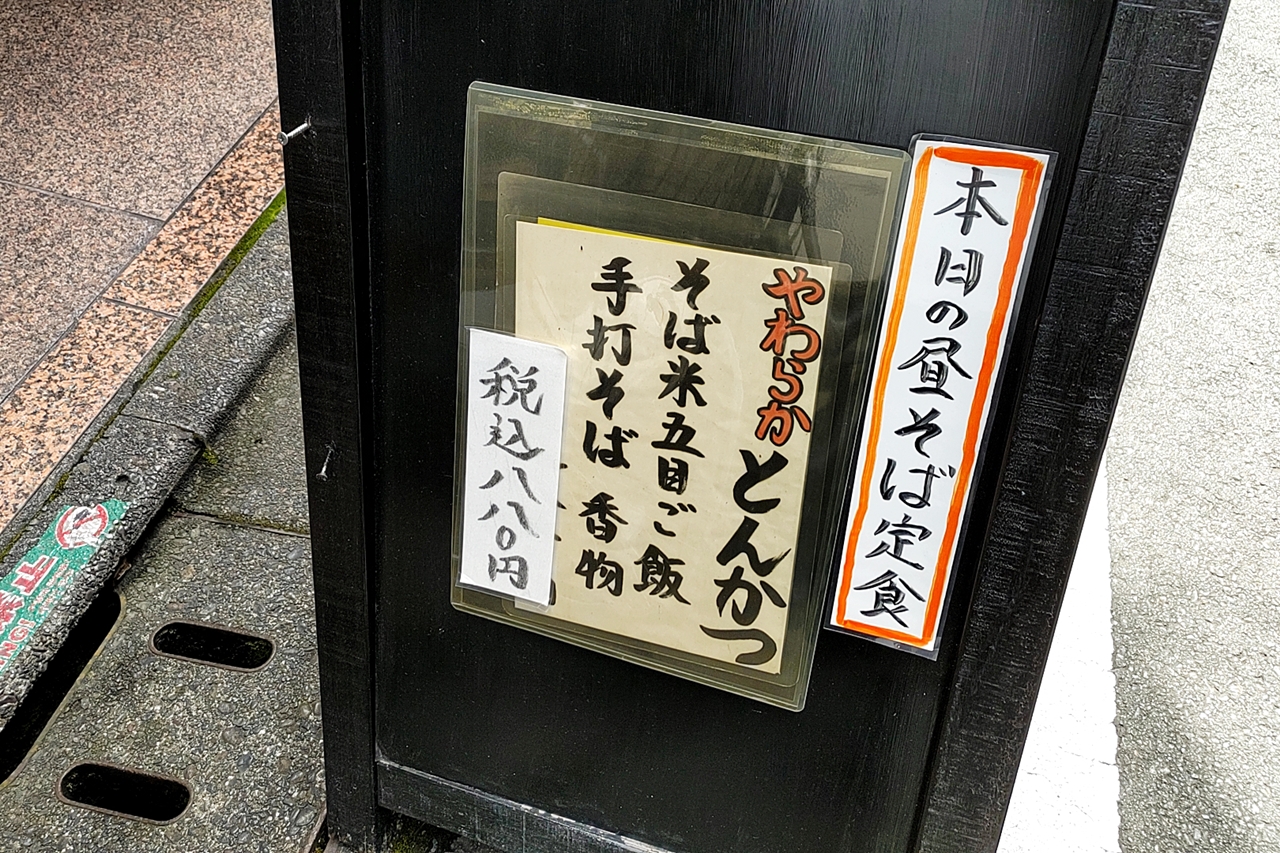 本日の昼そば定食
やわらかとんかつ
そば米五目ご飯
手打そば 香物
税込八八〇円
止